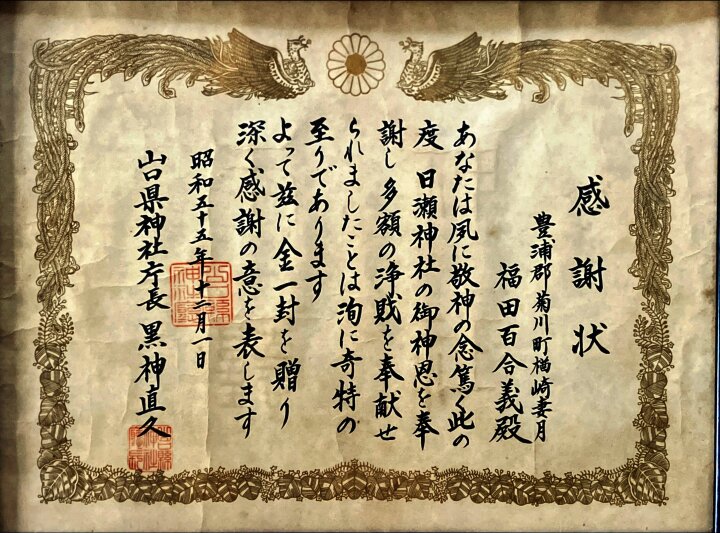 感謝状
豊浦郡菊川町楢崎妻月
福田百合義殿
あなたは夙に敬神の念篤く此の
度 日瀬神社の御神恩を奉
謝し多額の浄財を奉献せ
られましたことは洵に奇特の
至りであります
よって茲に金一封を贈り
深く感謝の意を表します
昭和五十五年十二月一日
山口県神社庁長 黒神直久